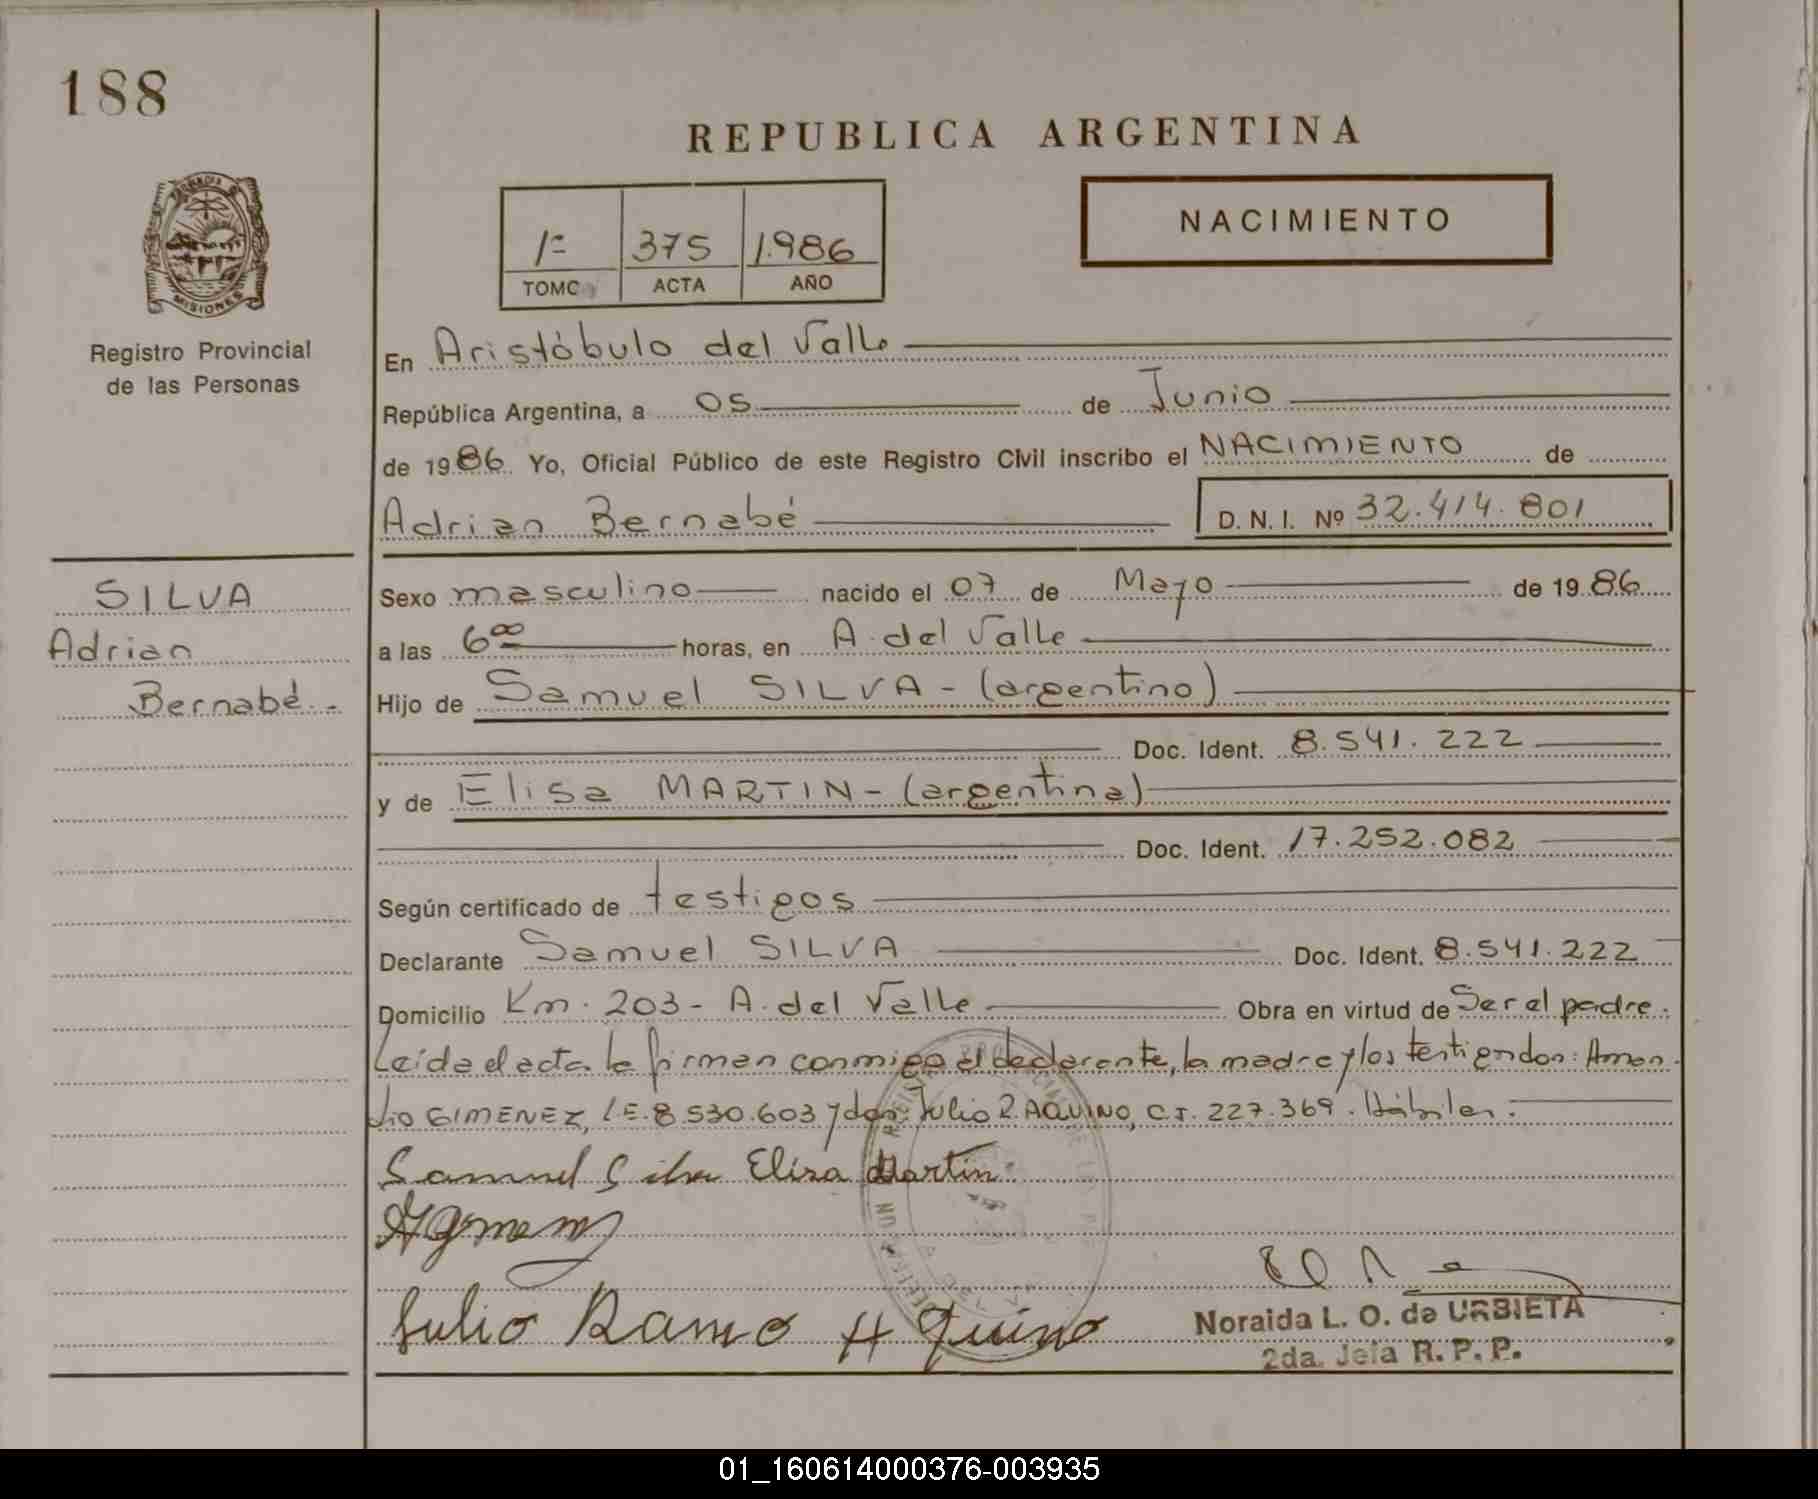 188
REPUBLICA ARGENTINA
NACIMIENTO
1º 375 1.986
TOMO ACTA AÑO
MISIONES
Registro Provincial
de las Personas
En Aristóbulo del Valle
República Argentina, a 05 de Junio
de 1986 Yo, Oficial Público de este Registro Civil inscribo el NACIMIENTO de
Adrian Bernabé D. N. I. Nº 32.414.801
SILVA
Adrian
Bernabé.-
Sexo masculino nacido el 07 de Mayo de 19 86
a las 6ºº horas, en A. del Valle
Hijo de Samuel SILVA - (argentino)
Doc. Ident. 8.541.222
y de Elisa MARTIN - (argentina)
Doc. Ident. 17.252.082
Según certificado de testigos
Declarante Samuel SILVA Doc. Ident. 8.541.222
Domicilio Km. 203 - A. del Valle Obra en virtud de Ser el padre.
Leída el acta la firman conmigo el declarante, la madre y los testigos don: Aman-
cio GIMENEZ, L.E. 8.530.603 y don: Julio R. AQUINO, C.I. 227.369. Hábiles.
Samuel Silva Elisa Martin
Julio Ramo Aquino
Noraida L. O. de URBIETA
2da. Jefa R. P. P.
01_160614000376-003935